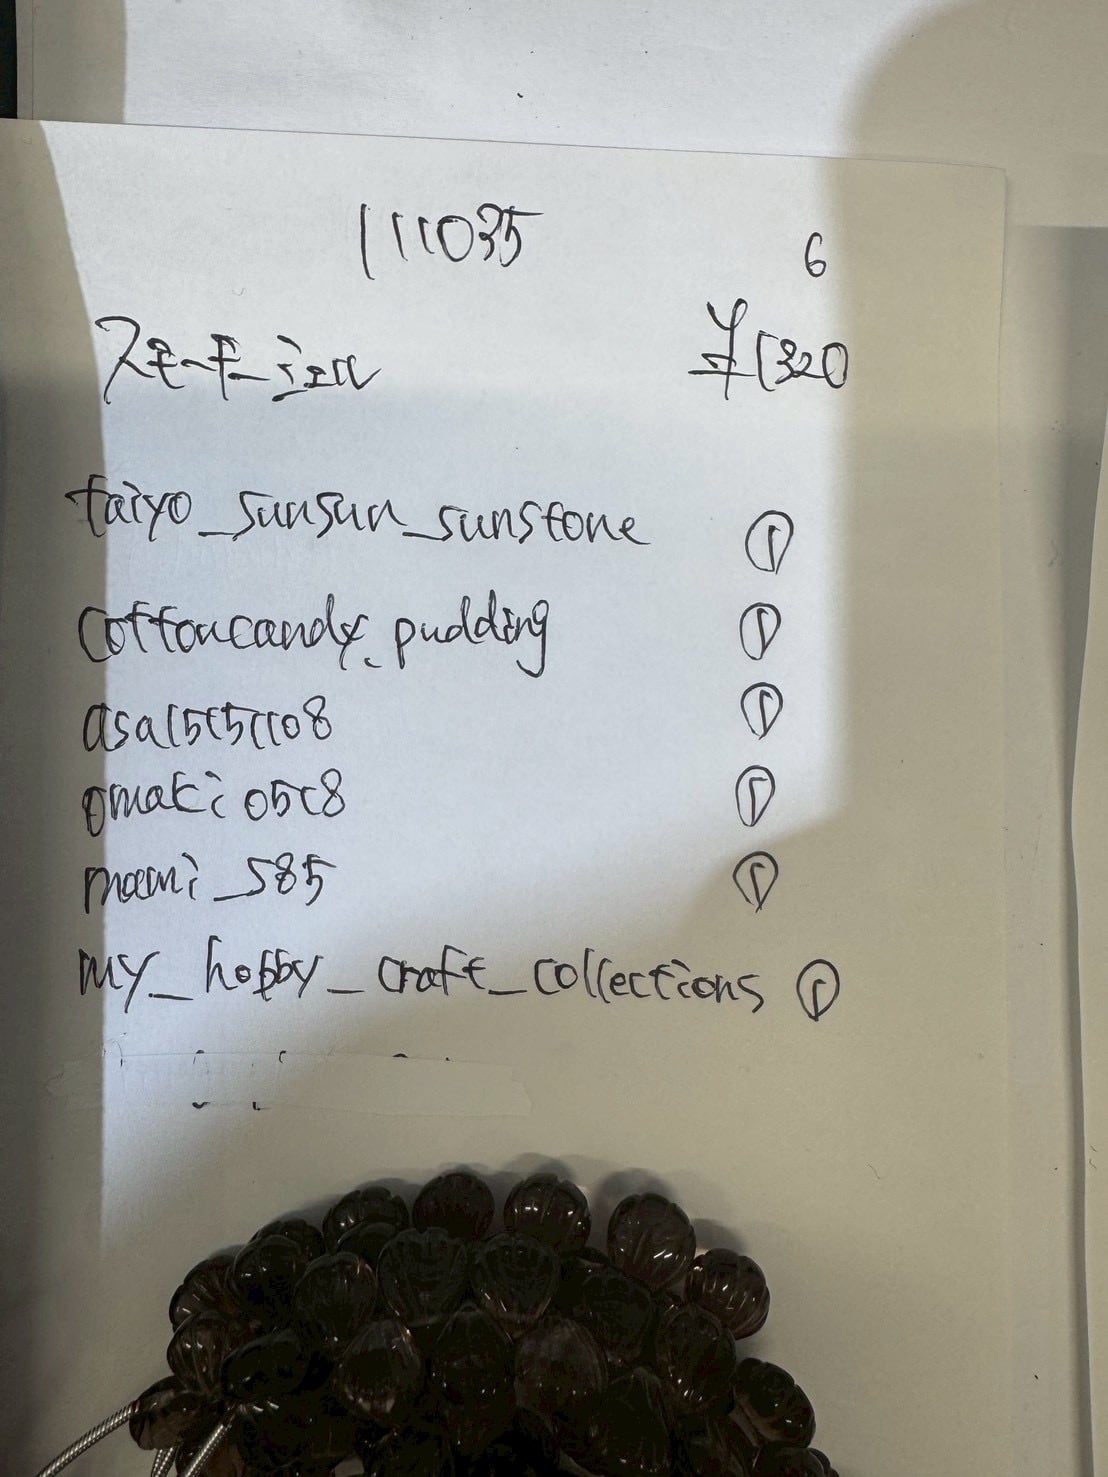 111035
6
スモーキーシェル
¥1320
taiyo_sunsun_sunstone ①
cottoncandy_pudding ①
asa15151108 ①
omaki0518 ①
mami_585 ①
my_hobby_craft_collections ①